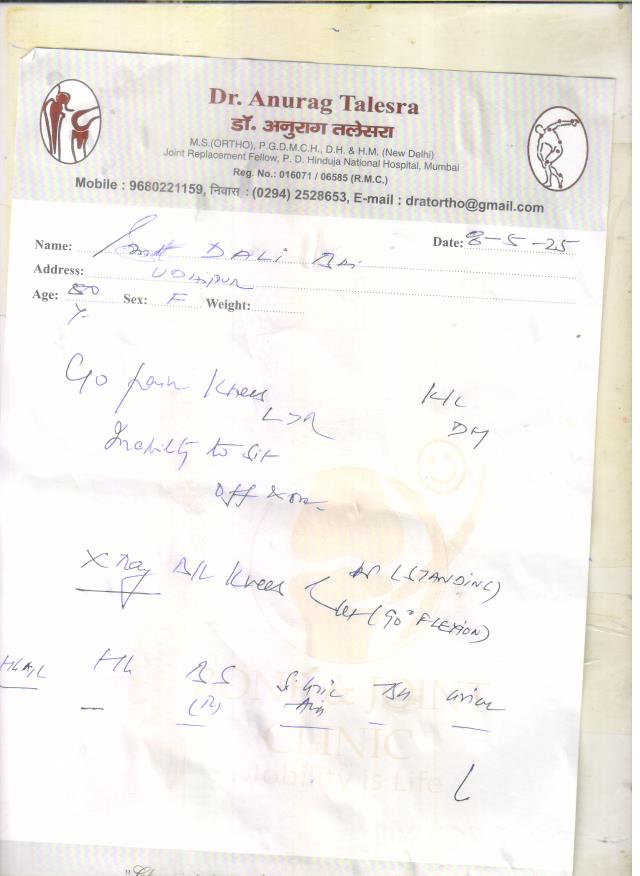 Dr. Anurag Talesra
डॉ. अनुराग तलेसरा
M.S.(ORTHO), P.G.D.M.C.H., D.H. & H.M. (New Delhi)
Joint Replacement Fellow, P. D. Hinduja National Hospital, Mumbai
Reg. No.: 016071 / 06585 (R.M.C.)
Mobile : 9680221159, निवास : (0294) 2528653, E-mail : dratortho@gmail.com
Name: DALI Bai Date: 8-5-25
Address: UDAIPUR
Age: Sex: F Weight:
Y
C/o pain Knees
L>R
DM
Inability to sit
off & on
X Ray B/L Knees AP (STANDING)
Lat (90° FLEXION)
HbA1c Hb BS Uric
(R) Acid
BONE & JOINT
CLINIC
Mobility is Life